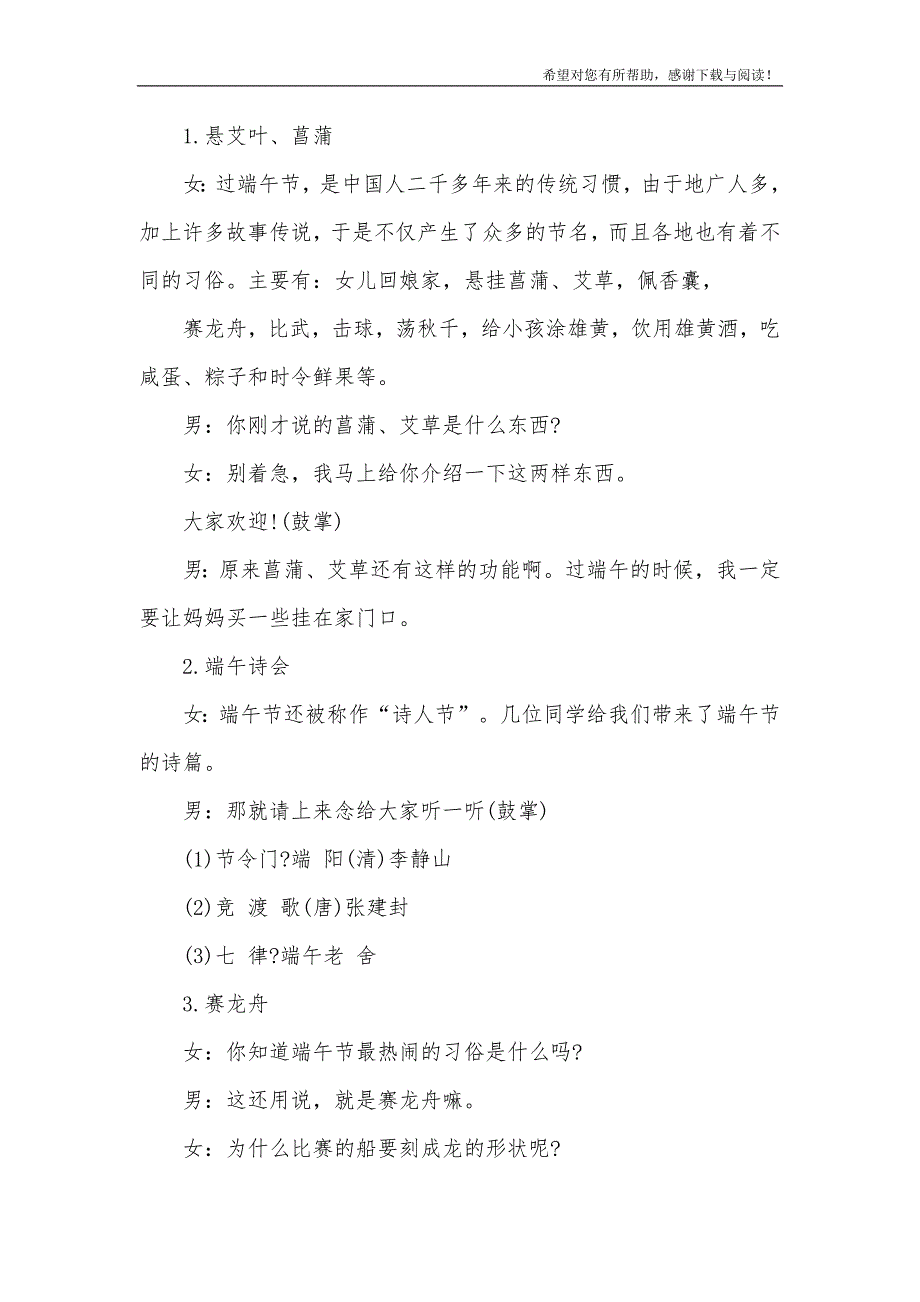 希望对您有所帮助，感谢下载与阅读！
1.悬艾叶、菖蒲
女：过端午节，是中国人二千多年来的传统习惯，由于地广人多，
加上许多故事传说，于是不仅产生了众多的节名，而且各地也有着不
同的习俗。主要有：女儿回娘家，悬挂菖蒲、艾草，佩香囊，
赛龙舟，比武，击球，荡秋千，给小孩涂雄黄，饮用雄黄酒，吃
咸蛋、粽子和时令鲜果等。
男：你刚才说的菖蒲、艾草是什么东西?
女：别着急，我马上给你介绍一下这两样东西。
大家欢迎!(鼓掌)
男：原来菖蒲、艾草还有这样的功能啊。过端午的时候，我一定
要让妈妈买一些挂在家门口。
2.端午诗会
女：端午节还被称作“诗人节”。几位同学给我们带来了端午节
的诗篇。
男：那就请上来念给大家听一听(鼓掌)
(1)节令门?端 阳(清)李静山
(2)竞 渡 歌(唐)张建封
(3)七 律?端午老 舍
3.赛龙舟
女：你知道端午节最热闹的习俗是什么吗?
男：这还用说，就是赛龙舟嘛。
女：为什么比赛的船要刻成龙的形状呢?